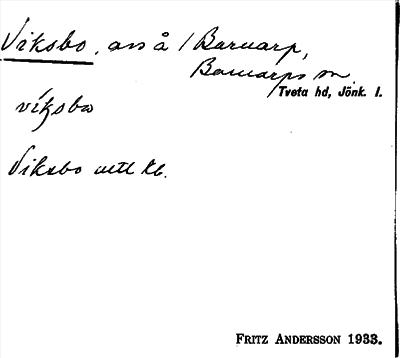 Viksbo, avs å / Barnarp,
Barnarps sn
Tveta hd, Jönk. l.
viksbo
Viksbo uttl kb.
FRITZ ANDERSSON 1933.